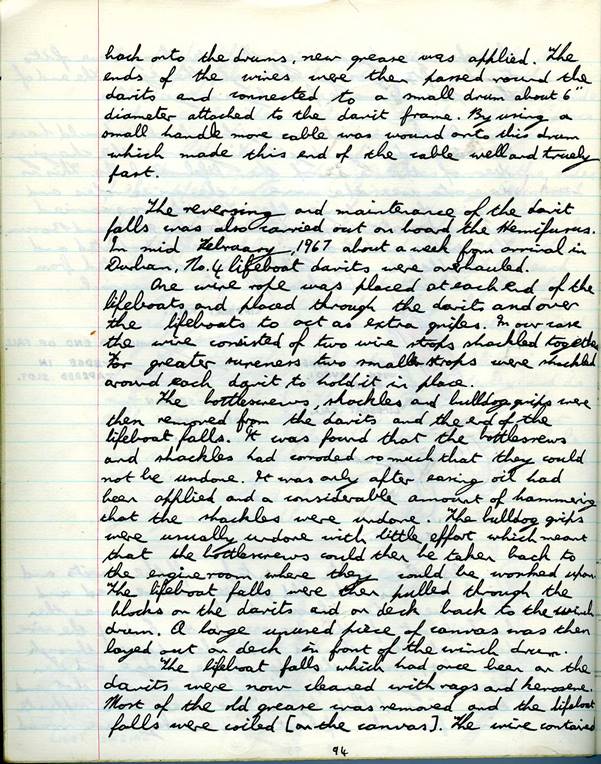 back onto the drums, new grease was applied. The
ends of the wires were then passed round the
davits and connected to a small drum about 6"
diameter attached to the davit frame. By using a
small handle more cable was wound onto this drum
which made this end of the cable well and truely
fast.
The reversing and maintenance of the davit
falls was also carried out on board the Hemifusus.
In mid Febraary, 1967 about a week from arrival in
Durban, No. 4 lifeboat davits were overhauled.
One wire rope was placed at each end of the
lifeboats and placed through the davits and over
the lifeboats to act as extra gripes. In our case
the wire consisted of two wire strops shackled together
For greater sureness two smaller strops were shackled
around each davit to hold it in place.
The bottlescrews, shackles and bulldog grips were
then removed from the davits and the end of the
lifeboat falls. It was found that the bottlesrews
and shackles had corroded so much that they could
not be undone. It was only after easing oil had
been applied and a considerable amount of hammering
that the shackles were undone. The bulldog grips
were usually undone with little effort which meant
that the bottlescrews could then be taken back to
the engineroom where they could be worked upon.
The lifeboat falls were then pulled through the
blocks on the davits and on deck back to the winch
drum. A large unused piece of canvas was then
layed out on deck in front of the winch drum.
The lifeboat falls which had once been on the
davits were now cleaned with rags and kerosene.
Most of the old grease was removed and the lifeboat
falls were coiled [on the canvas]. The wire contained
94